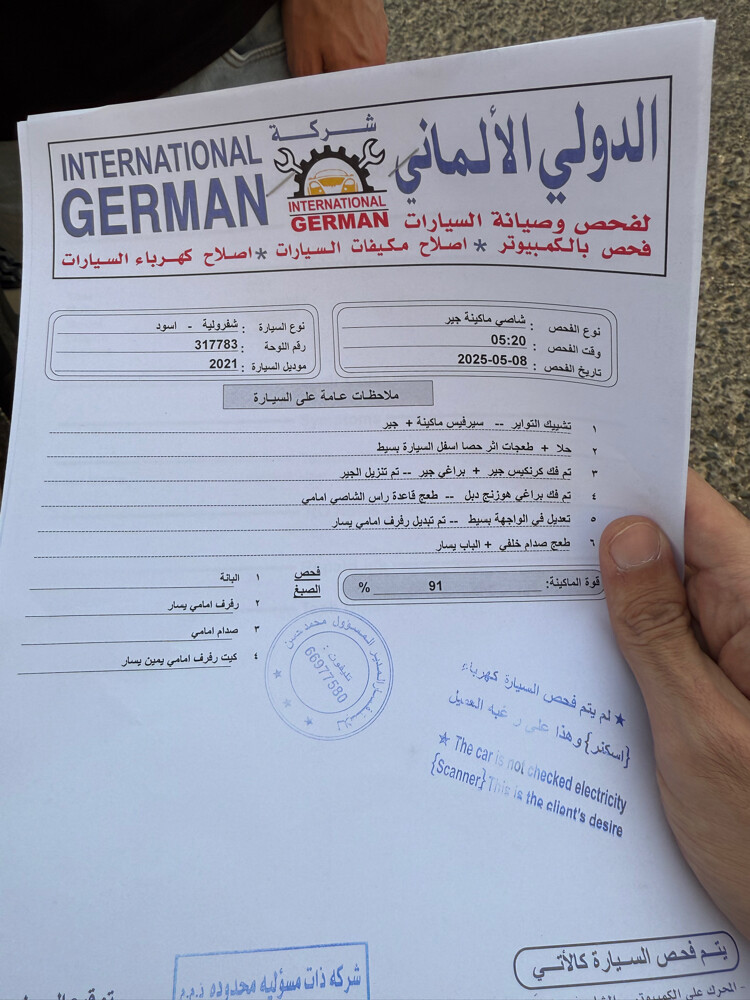 شركة
INTERNATIONAL GERMAN
INTERNATIONAL
GERMAN
الدولي الألماني
لفحص وصيانة السيارات
فحص بالكمبيوتر * اصلاح مكيفات السيارات * اصلاح كهرباء السيارات
نوع الفحص : شاصي ماكينة جير
وقت الفحص : 05:20
تاريخ الفحص : 2025-05-08
نوع السيارة : شفرولية - اسود
رقم اللوحة : 317783
موديل السيارة : 2021
ملاحظات عامة على السيارة
١ تشييك التواير -- سيرفيس ماكينة + جير
٢ حلا + طعجات اثر حصا اسفل السيارة بسيط
٣ تم فك كرنكيس جير + براغي جير -- تم تنزيل الجير
٤ تم فك براغي هوزنج دبل -- طعج قاعدة راس الشاصي امامي
٥ تعديل في الواجهة بسيط -- تم تبديل رفرف امامي يسار
٦ طعج صدام خلفي + الباب يسار
قوة الماكينة: 91 %
فحص الصبغ
١ البانة
٢ رفرف امامي يسار
٣ صدام امامي
٤ كيت رفرف امامي يمين يسار
المدير المسؤول محمد حسن
تليفون :
66977580
للاستفسار
★ لم يتم فحص السيارة كهرباء
{اسكنر} وهذا على رغبه العميل
★ The car is not checked electricity
{Scanner} This is the client's desire
يتم فحص السيارة كالأتي
شركه ذات مسؤليه محدوده ذ.م.م